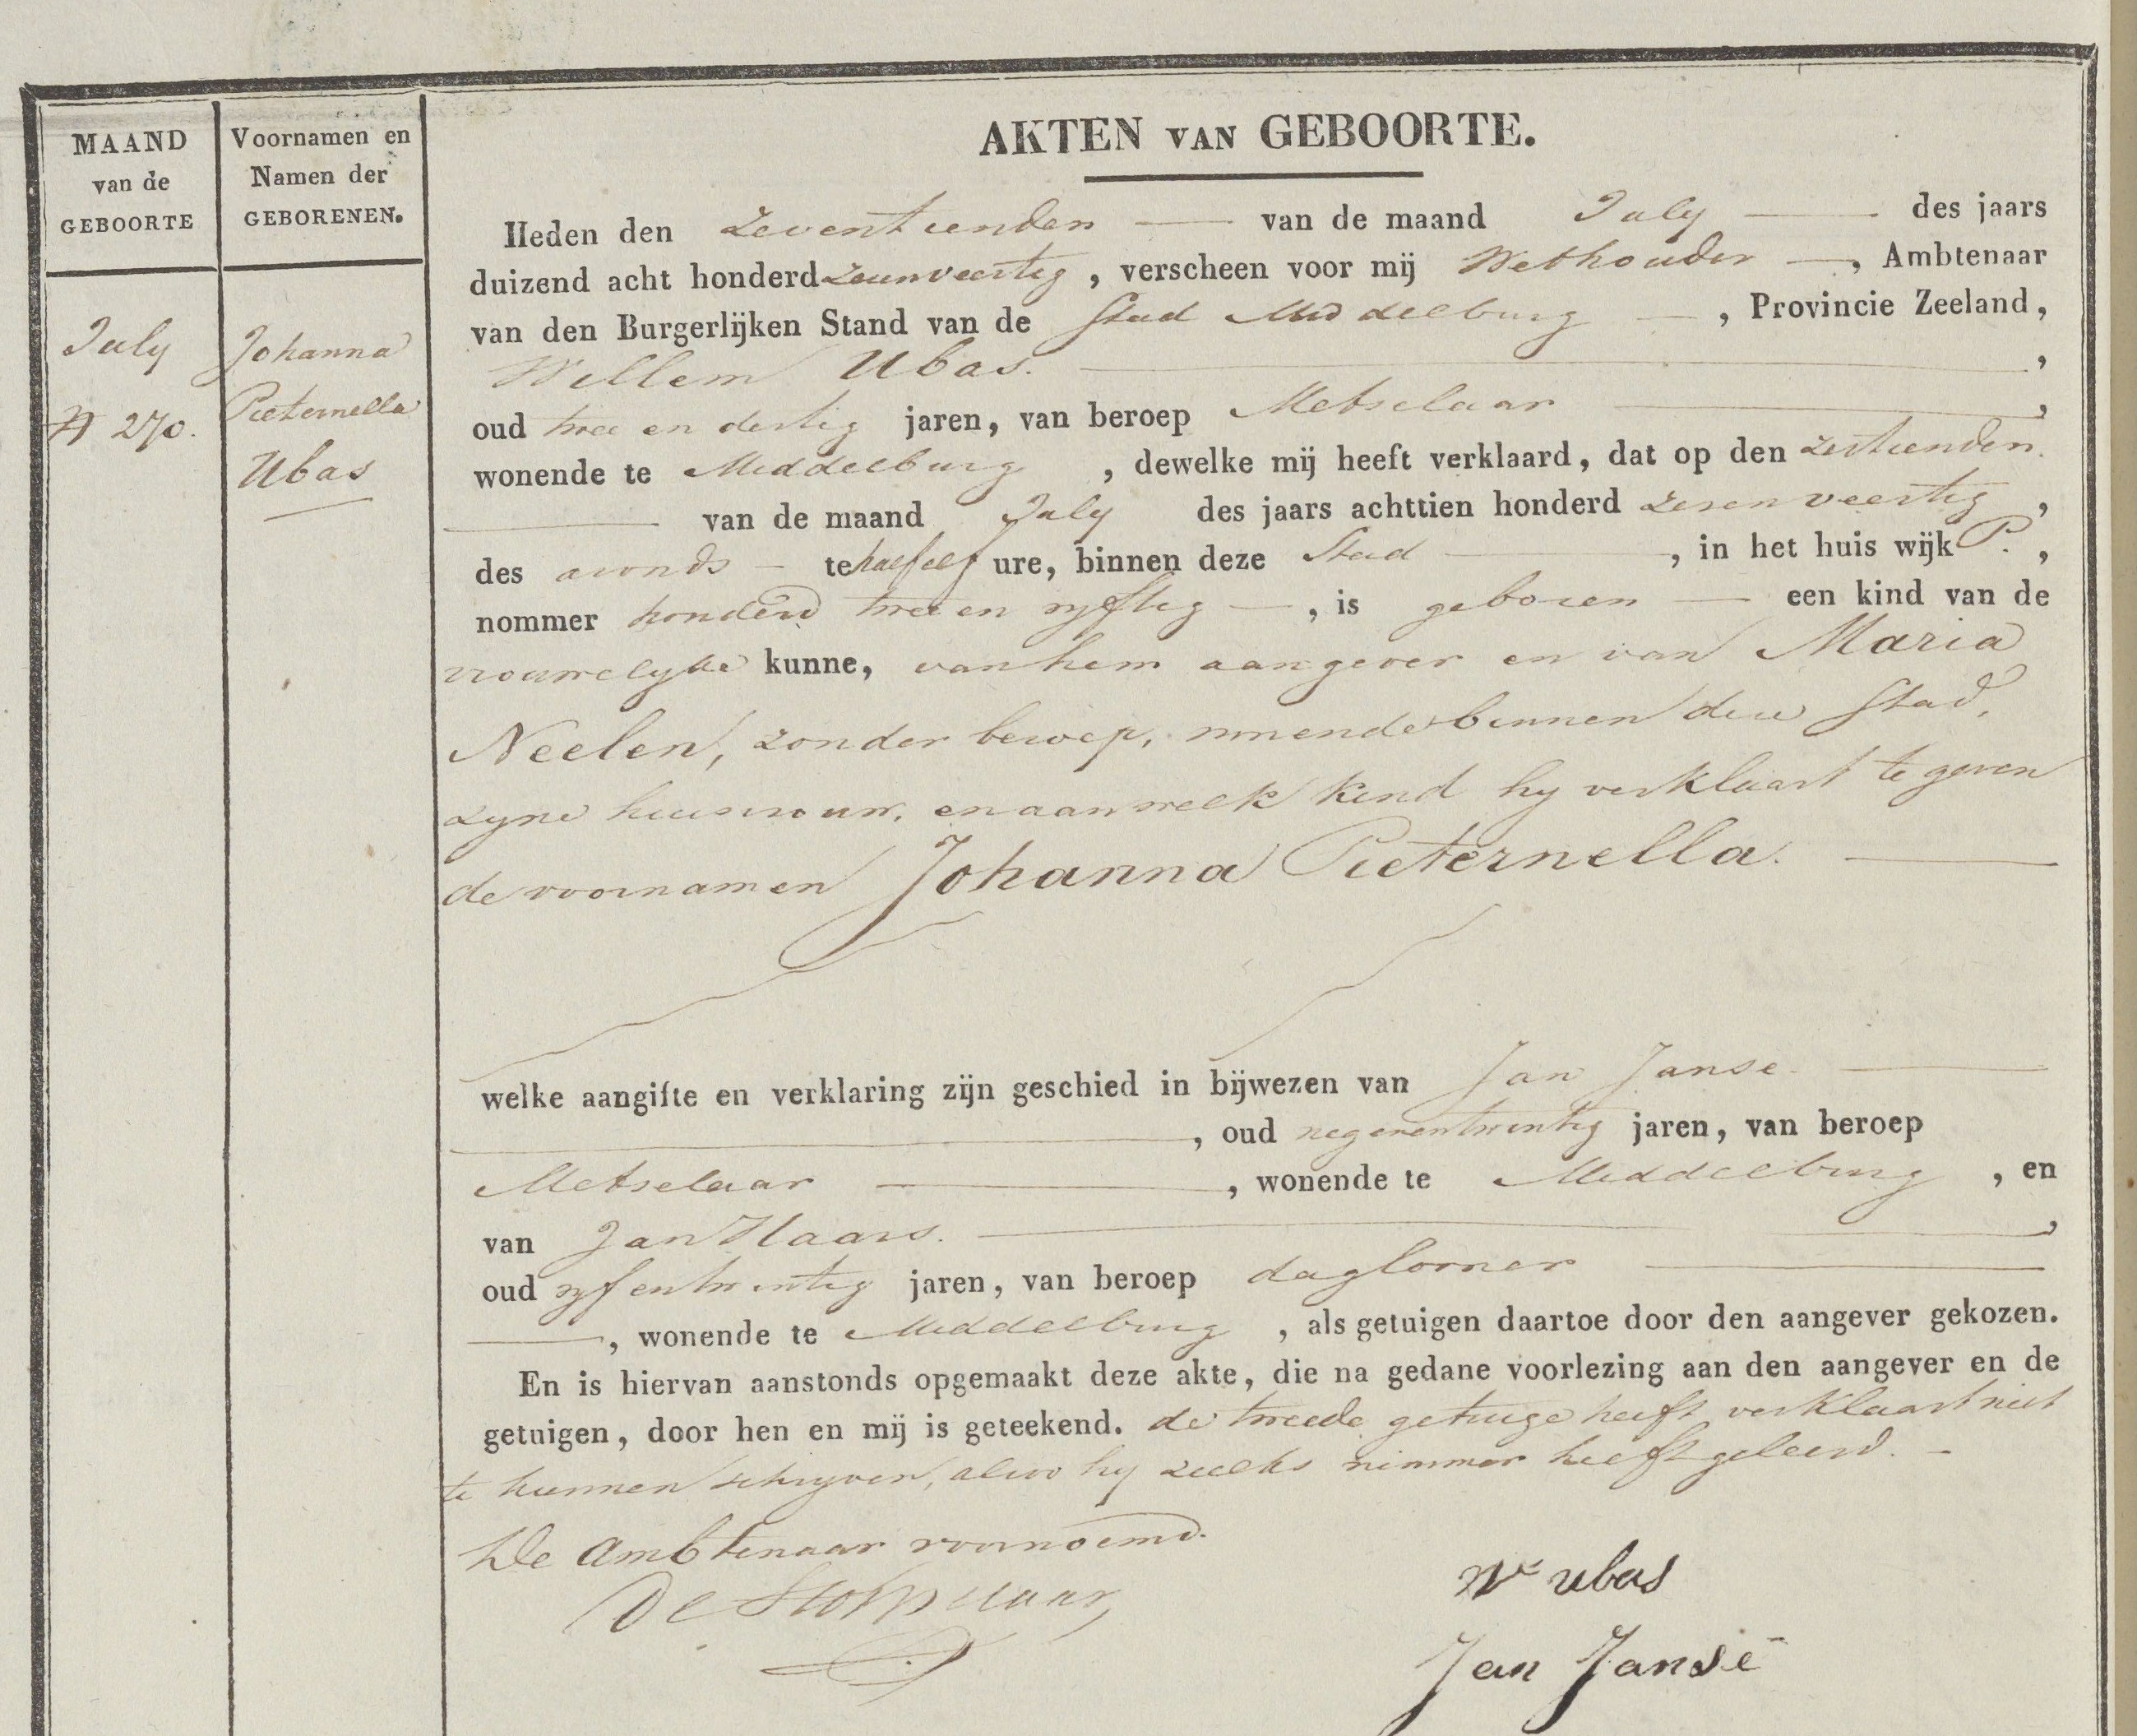 AKTEN VAN GEBOORTE.
MAAND
van de
GEBOORTE
Voornamen en
Namen der
GEBORENEN.
July
N 270.
Johanna
Pieternella
Ubas
Heden den zeventienden — van de maand July — des jaars
duizend acht honderd zesenveertig, verscheen voor mij Wethouder —, Ambtenaar
van den Burgerlijken Stand van de Stad Middelburg —, Provincie Zeeland,
Willem Ubas. —,
oud twee en dertig jaren, van beroep Metselaar —,
wonende te Middelburg, dewelke mij heeft verklaard, dat op den zestienden.
— van de maand July des jaars achttien honderd zesenveertig,
des avonds — te half elf ure, binnen deze Stad —, in het huis wijk P.,
nommer honderd twee en vyftig —, is geboren — een kind van de
vrouwelyke kunne, van hem aangever en van Maria
Neelen, zonder beroep, wonende binnen deze Stad,
zyne huisvrouw, en aan welk kind hy verklaart te geven
de voornamen Johanna Pieternella. —
welke aangifte en verklaring zijn geschied in bijwezen van Jan Janse —
—, oud negenentwintig jaren, van beroep
Metselaar —, wonende te Middelburg, en
van Jan Haars. —,
oud vyfentwintig jaren, van beroep dagloner —
—, wonende te Middelburg, als getuigen daartoe door den aangever gekozen.
En is hiervan aanstonds opgemaakt deze akte, die na gedane voorlezing aan den aangever en de
getuigen, door hen en mij is geteekend. de tweede getuige heeft verklaart niet
te kunnen schryven, alzoo hy zulks nimmer heeft geleerd. —
De Ambtenaar voornoemd.
De Stoppelaar
Wm ubas
Jan Janse